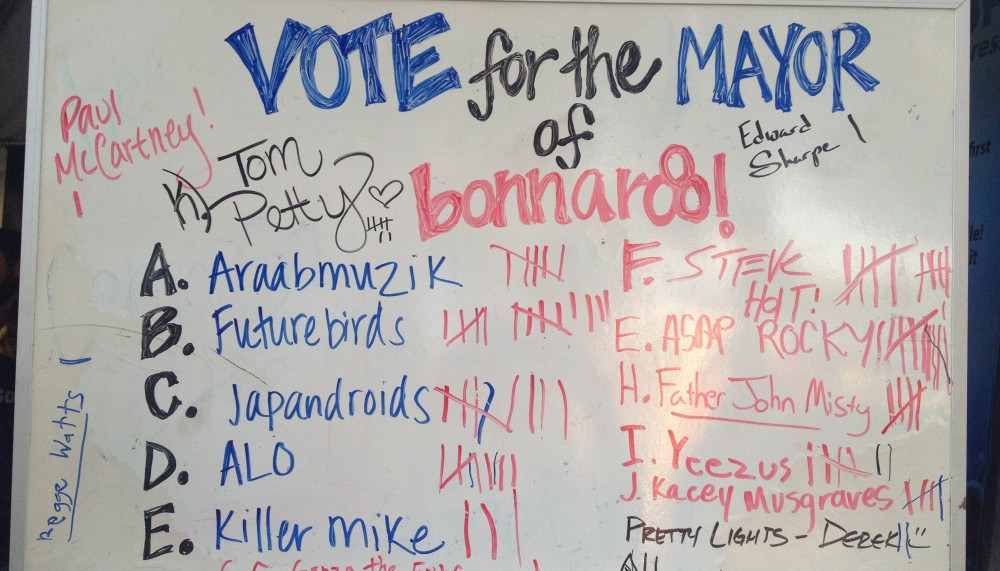 VOTE for the MAYOR
of
bonnaroo!
Paul
McCartney!
K) Tom
Petty
Edward
Sharpe
A. Araabmuzik
B. Futurebirds
C. Japandroids
D. ALO
E. Killer mike
F. STEVE
HOLT!
E. ASAP ROCKY
H. Father John Misty
I. Yeezus
J. Kacey Musgraves
PRETTY LIGHTS - DEREK
Regge Watts
first